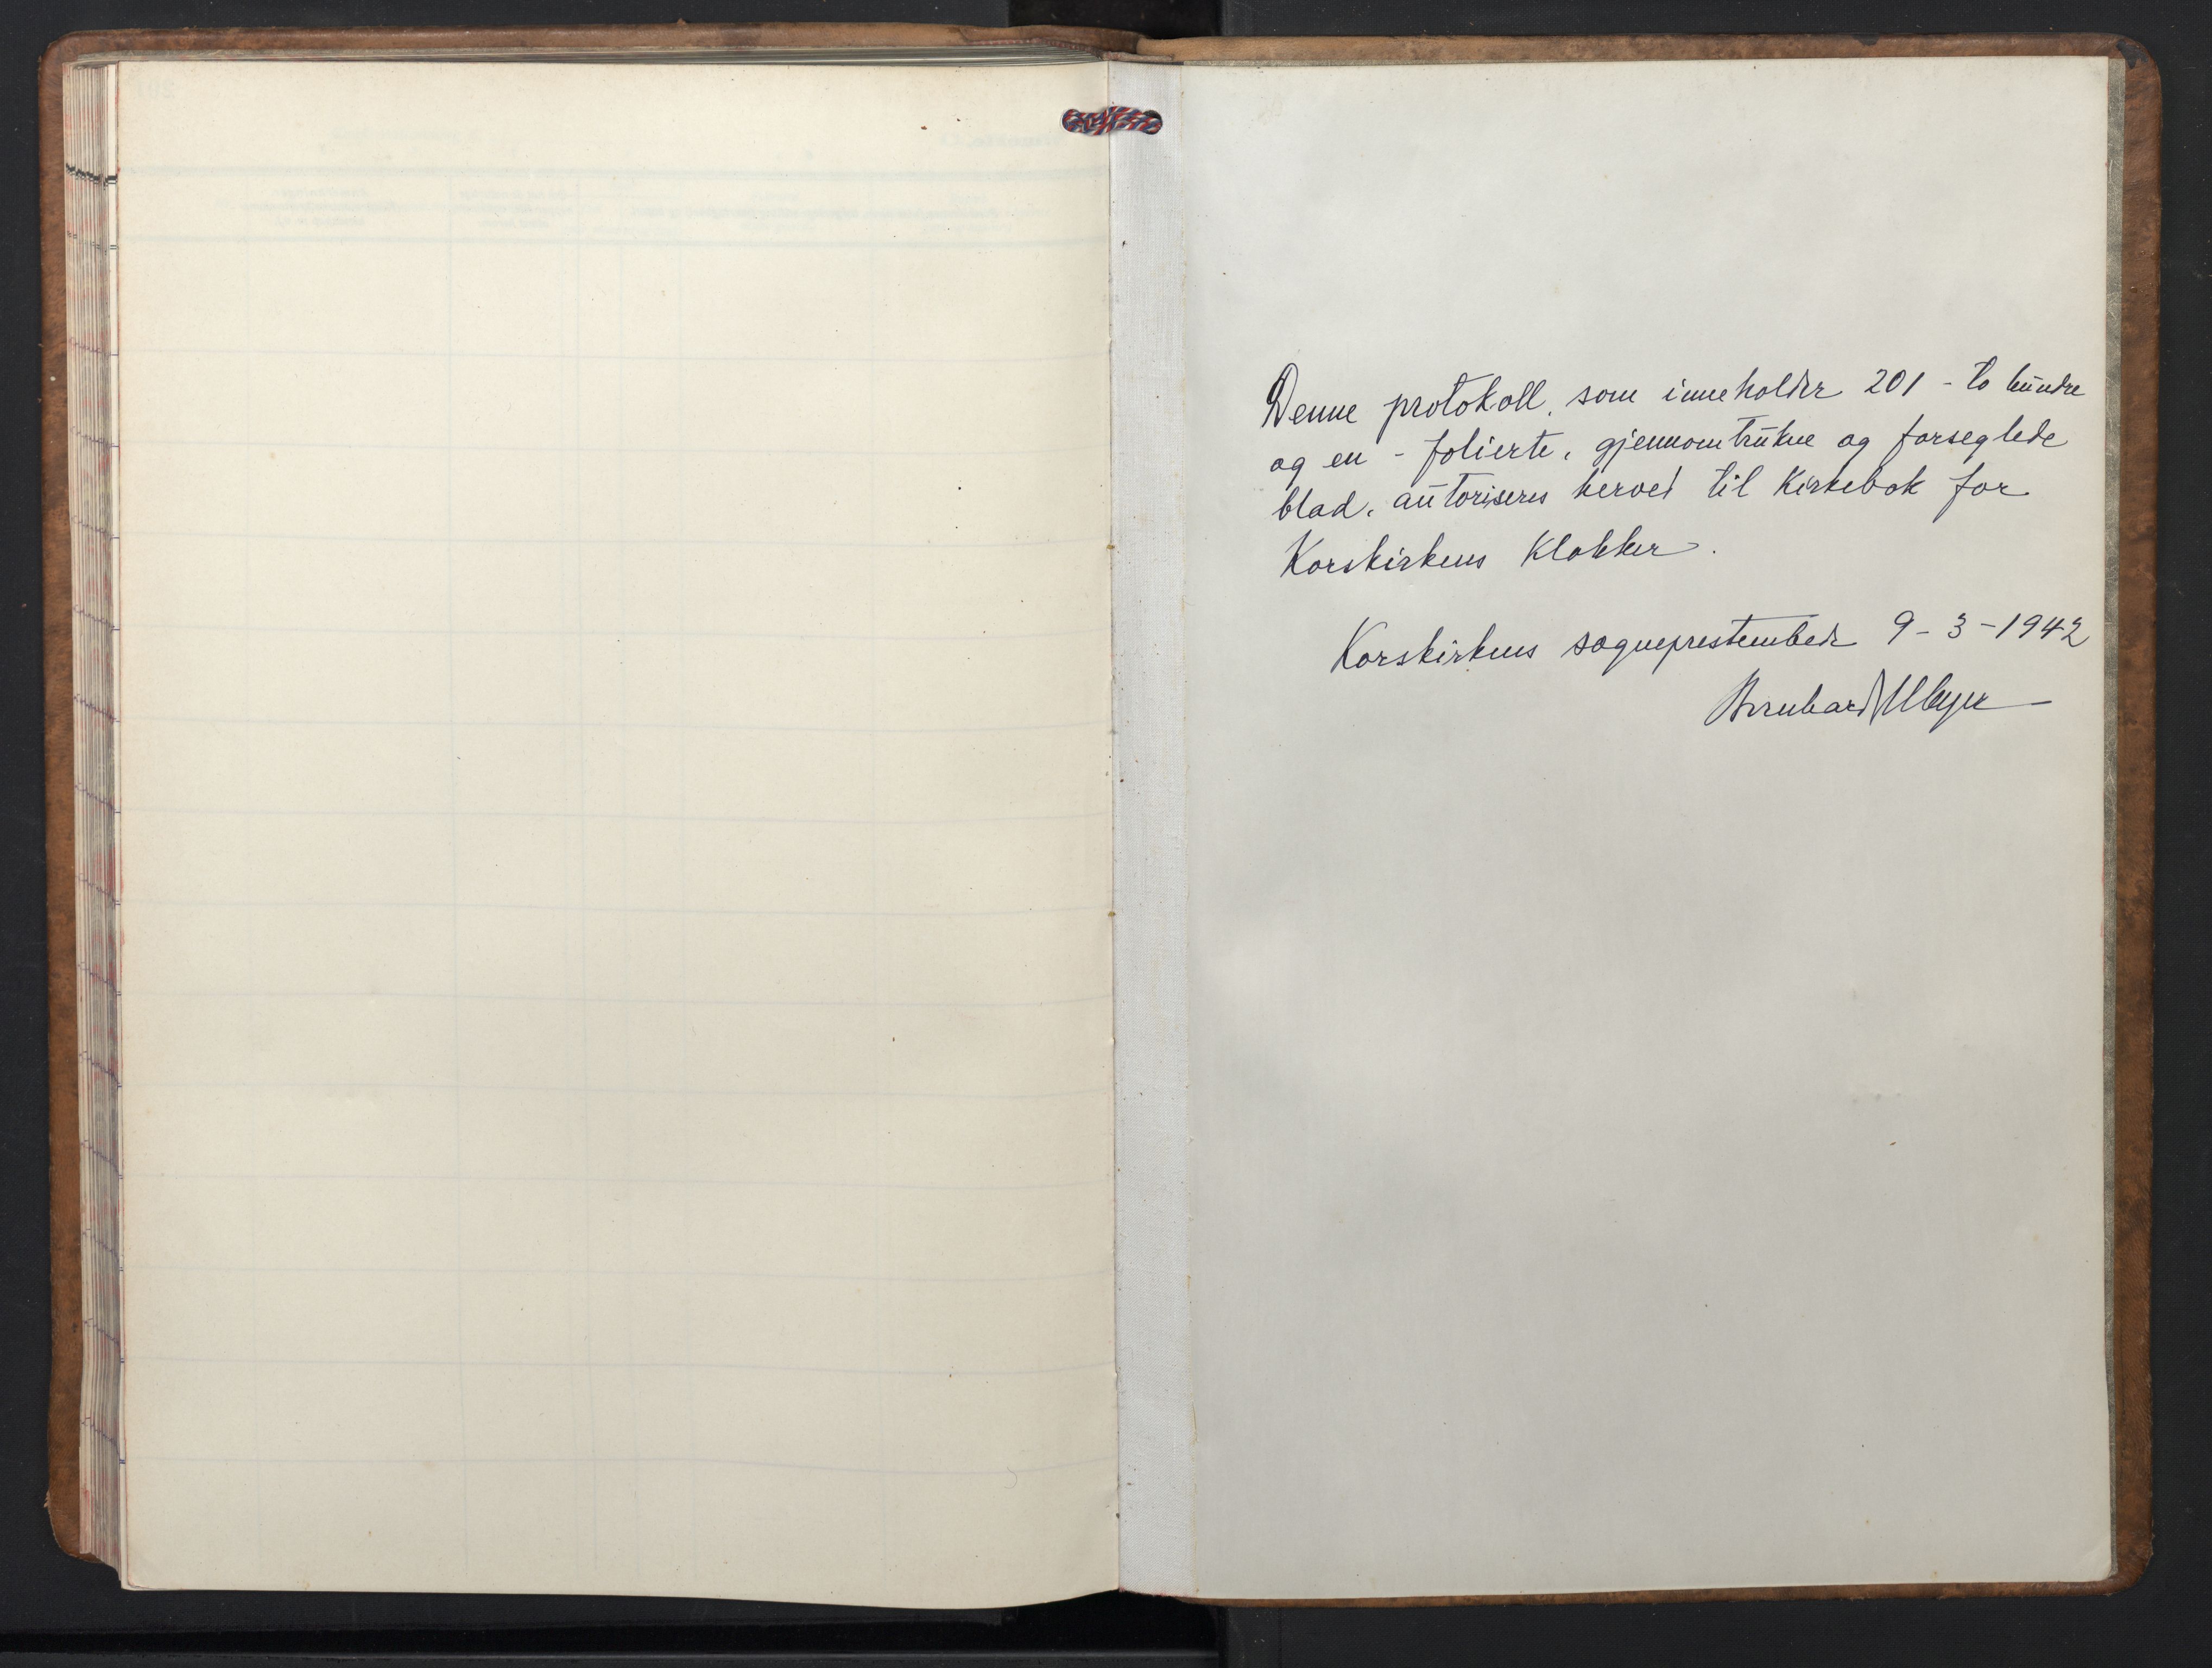 Denne protokoll, som inneholder 201 - to hundre
og en - folierte, gjennomtrukne og forseglede
blad, autoriseres herved til Kirkebok for
Korskirkens Klokker.
Korskirkens sogneprestembede 9-3-1942
Bernhard Meyer